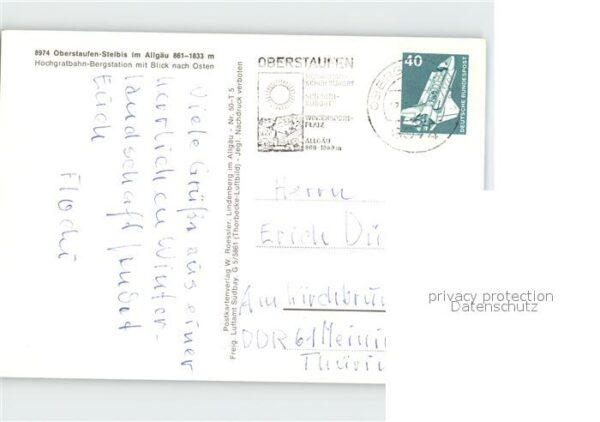 8974 Oberstaufen-Steibis im Allgäu 861–1833 m
Hochgratbahn-Bergstation mit Blick nach Osten
Viele Grüße aus einer
herrlichen Winter-
landschaft sendet
Euch
Flocki
Postkartenverlag W. Roessler, Lindenberg im Allgäu - Nr. 50-T 5
Freig. Luftamt Südbay. G 5/5861 (Thorbecke-Luftbild) - Jegl. Nachdruck verboten
OBERSTAUFEN
SCHROTH-
KURORT
WINTERSPORT-
PLATZ
ALLGÄU
40
DEUTSCHE BUNDESPOST
Herrn
Erich Dü
Am Kirchbru
DDR 61 Meinin
Thürin
privacy protection
Datenschutz